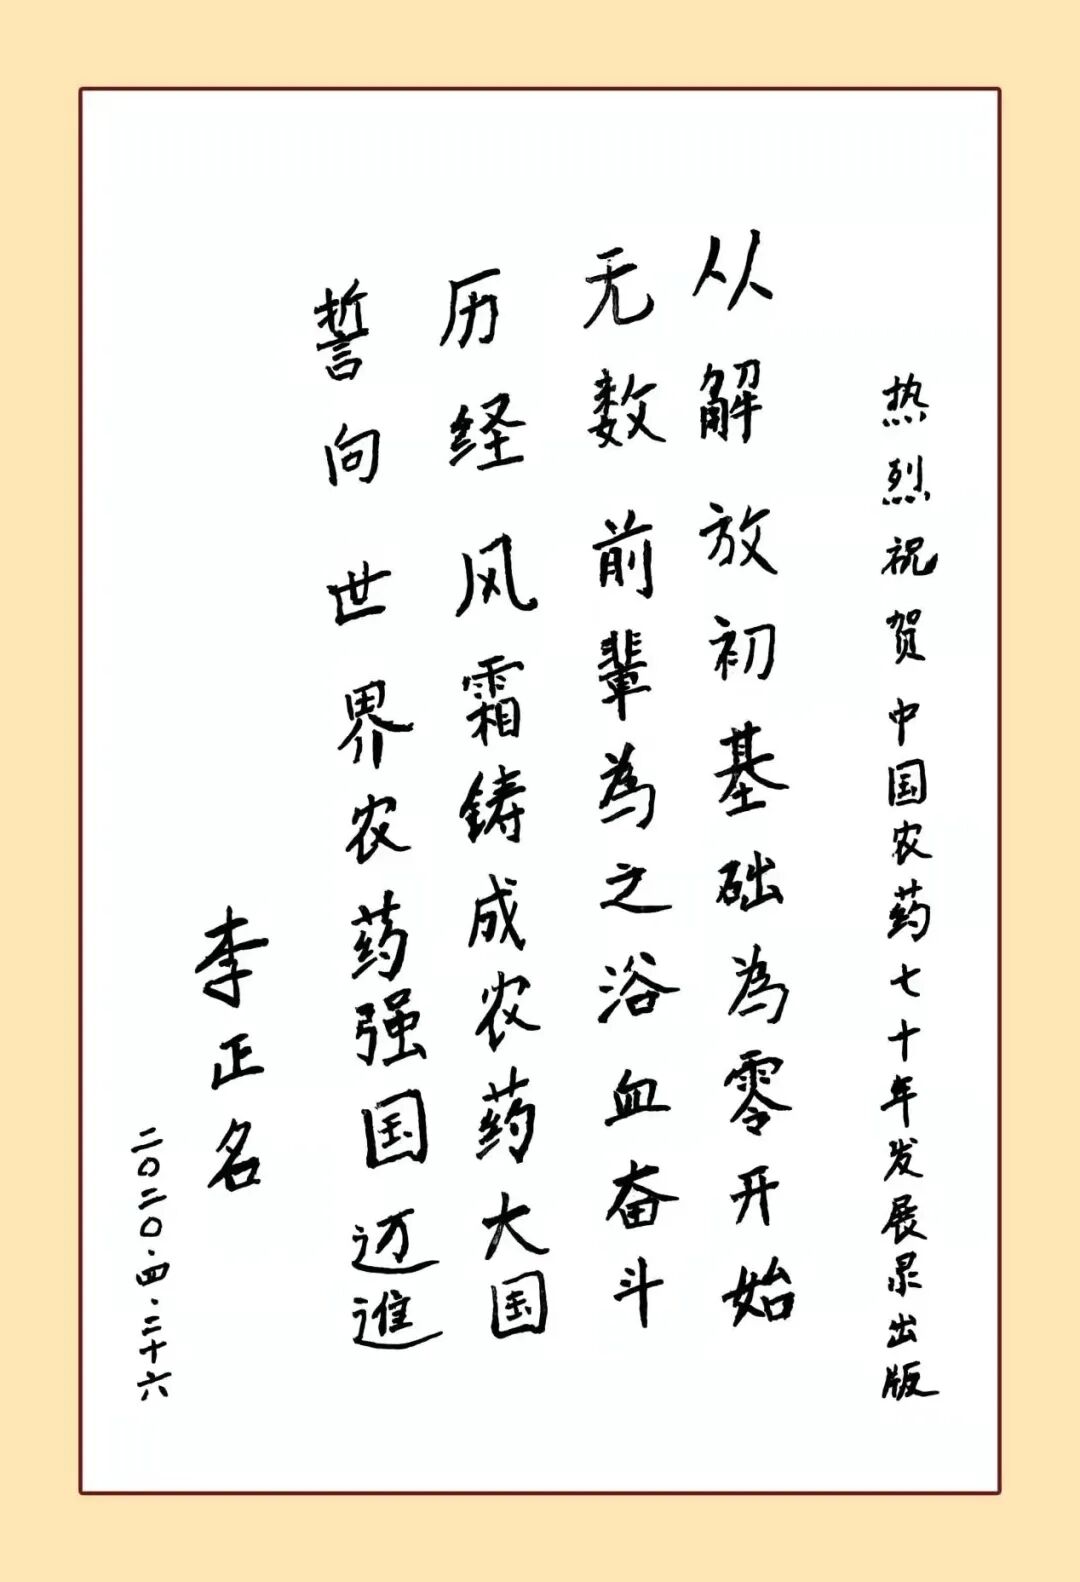 热烈祝贺中国农药七十年发展录出版
从解放初基础為零开始
无数前輩為之浴血奋斗
历经风霜铸成农药大国
誓向世界农药强国迈進
李正名
二〇二〇·四·二十六